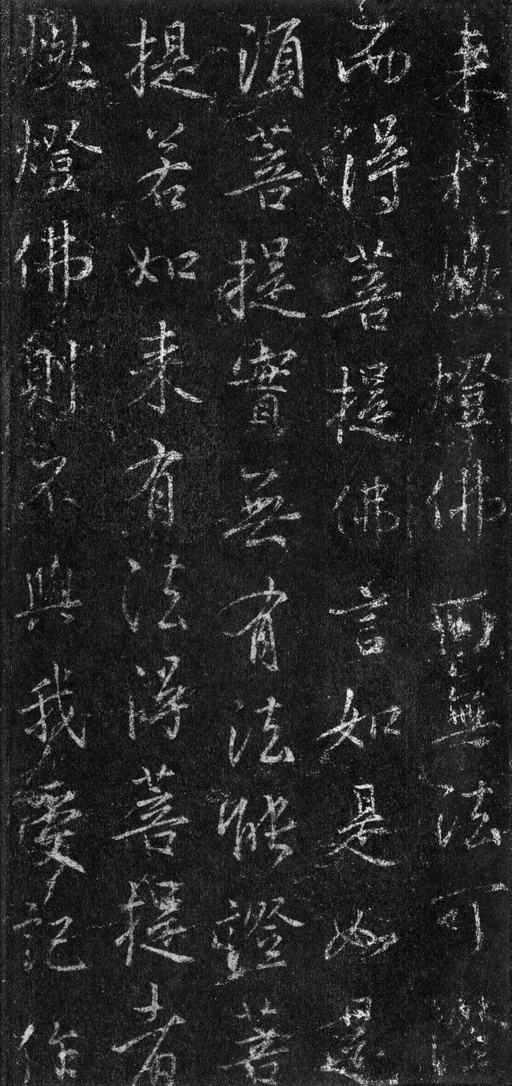 來於燃燈佛所無法可證
而得菩提佛言如是如是
須菩提實無有法能證菩
提若如来有法得菩提者
燃燈佛則不與我受記作